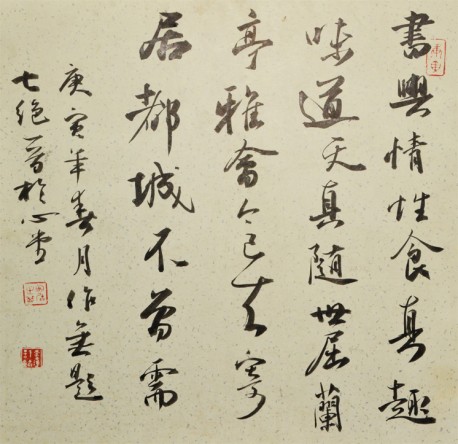 書興情性食真趣
味道天真隨世屈蘭
亭雅會今已去寄
居都城不曾需
庚寅年春月作無題
七絕一首於心堂